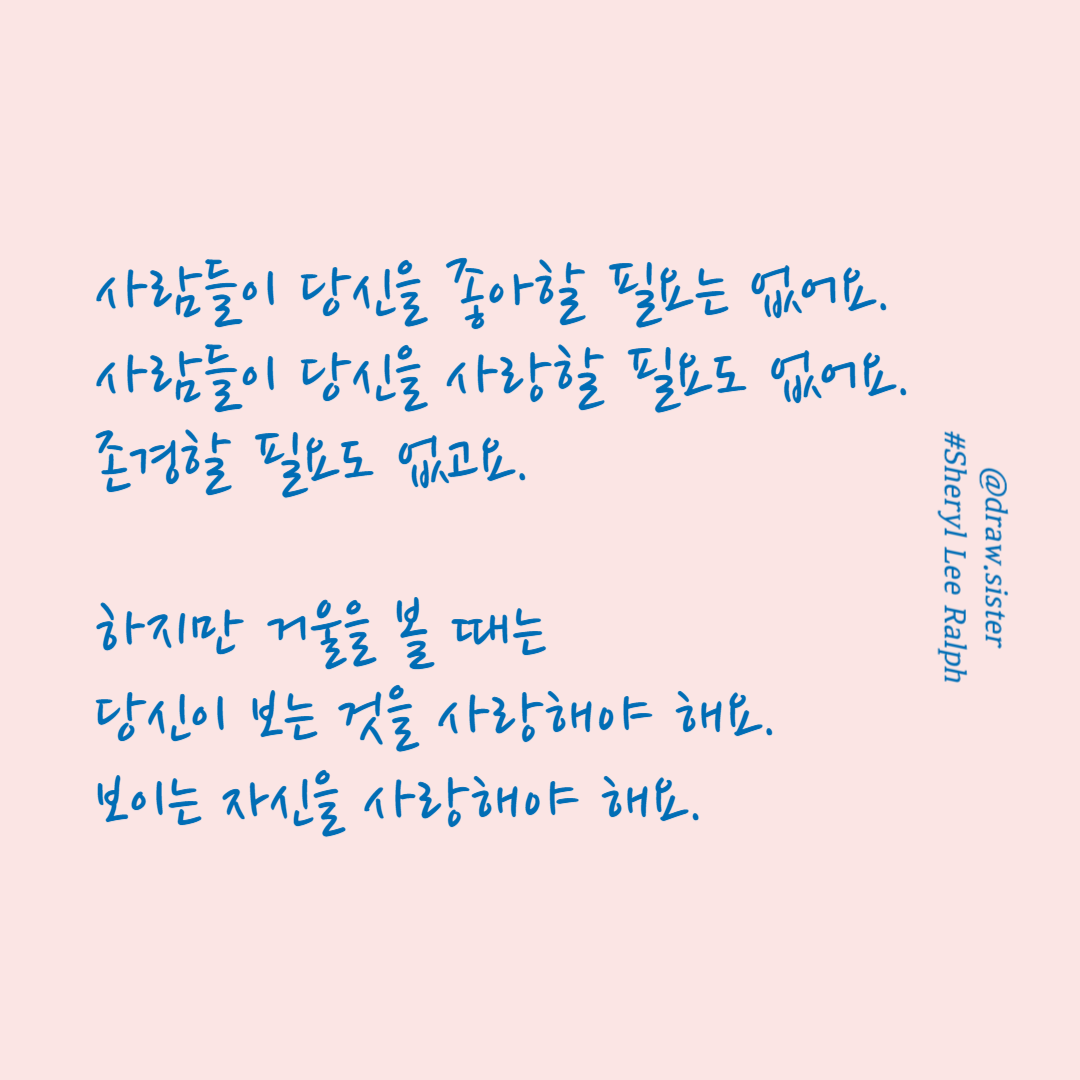 사람들이 당신을 좋아할 필요는 없어요.
사람들이 당신을 사랑할 필요도 없어요.
존경할 필요도 없고요.
하지만 거울을 볼 때는
당신이 보는 것을 사랑해야 해요.
보이는 자신을 사랑해야 해요.
@draw.sister
#Sheryl Lee Ralph